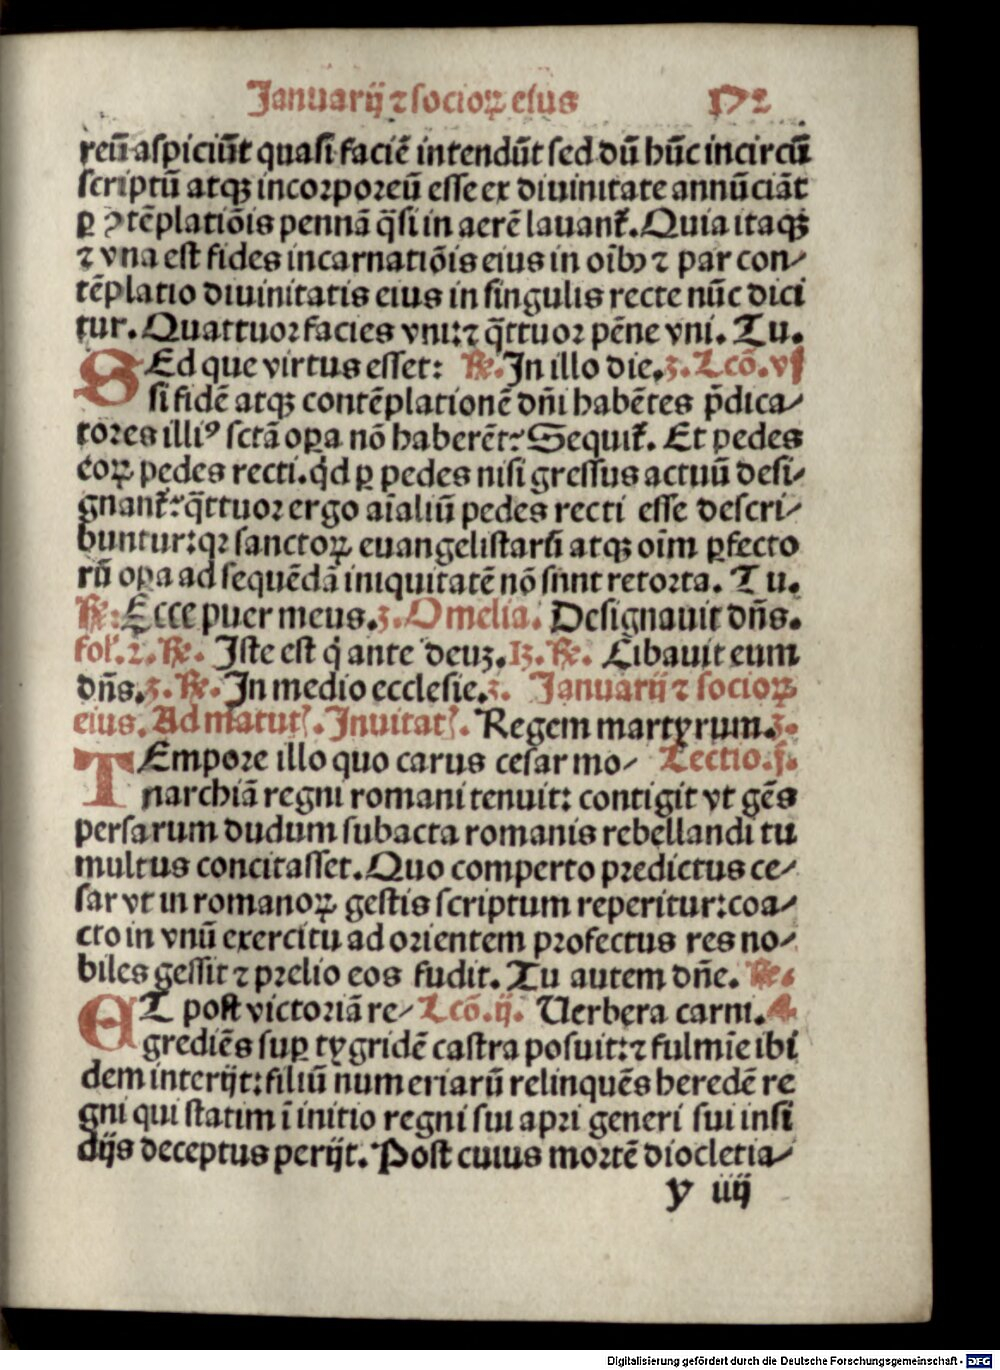 Januarij ⁊ socioꝝ eius 172
reū aspiciūt quasi faciē intendūt sed dū hūc incircū
scriptū atqꝫ incorporeū esse ex diuinitate annūciāt
ꝑ ꝯtēplatiōis pennā q̄si in aerē lauant᷑. Quia itaqꝫ
⁊ vna est fides incarnatiōis eius in oībꝰ ⁊ par con⸗
tēplatio diuinitatis eius in singulis recte nūc dici
tur. Quattuor facies vni:⁊ q̄ttuor pēne vni. Tu.
SEd que virtus esset: ℟. In illo die.ꝫ. Lcō. vj
si fidē atqꝫ contēplationē dn̄i habētes p̄dica⸗
tores illiꝰ sctā oꝑa nō haberēt? Sequit᷑. Et pedes
eoꝝ pedes recti. qd̄ ꝑ pedes nisi gressus actuū desi⸗
gnant᷑? q̄ttuor ergo aīaliū pedes recti esse descri⸗
buntur: qꝛ sanctoꝝ euangelistarū atqꝫ oīm ꝑfecto
rū oꝑa ad sequēdā iniquitatē nō snnt retorta. Tu.
℟: Ecce puer meus.ꝫ. Omelia. Designauit dn̄s.
fol. 2. ℟. Iste est q̇ ante deuꝫ. 13. ℟. Cibauit eum
dn̄s.ꝫ. ℟. In medio ecclesie.ꝫ. Januarij ⁊ socioꝝ
eius. Ad matut̄. Inuitat̄. Regem martyrum.ꝫ.
TEmpore illo quo carus cesar mo⸗ Lectio. j.
narchiā regni romani tenuit: contigit vt gēs
persarum dudum subacta romanis rebellandi tu
multus concitasset. Quo comperto predictus ce⸗
sar vt in romanoꝝ gestis scriptum reperitur: coa⸗
cto in vnū exercitu ad orientem profectus res no⸗
biles gessit ⁊ prelio eos fudit. Tu autem dn̄e. ℟.
ET post victoriā re⸗ Lcō. ij. Uerbera carni. 4.
grediēs suꝑ tygridē castra posuit: ⁊ fulmīe ibi
dem interijt: filiū numeriarū relinquēs heredē re
gni qui statim ī initio regni sui apri generi sui insi
dijs deceptus perijt. Post cuius mortē diocletia⸗
y iiij
Digitalisierung gefördert durch die Deutsche Forschungsgemeinschaft - DFG